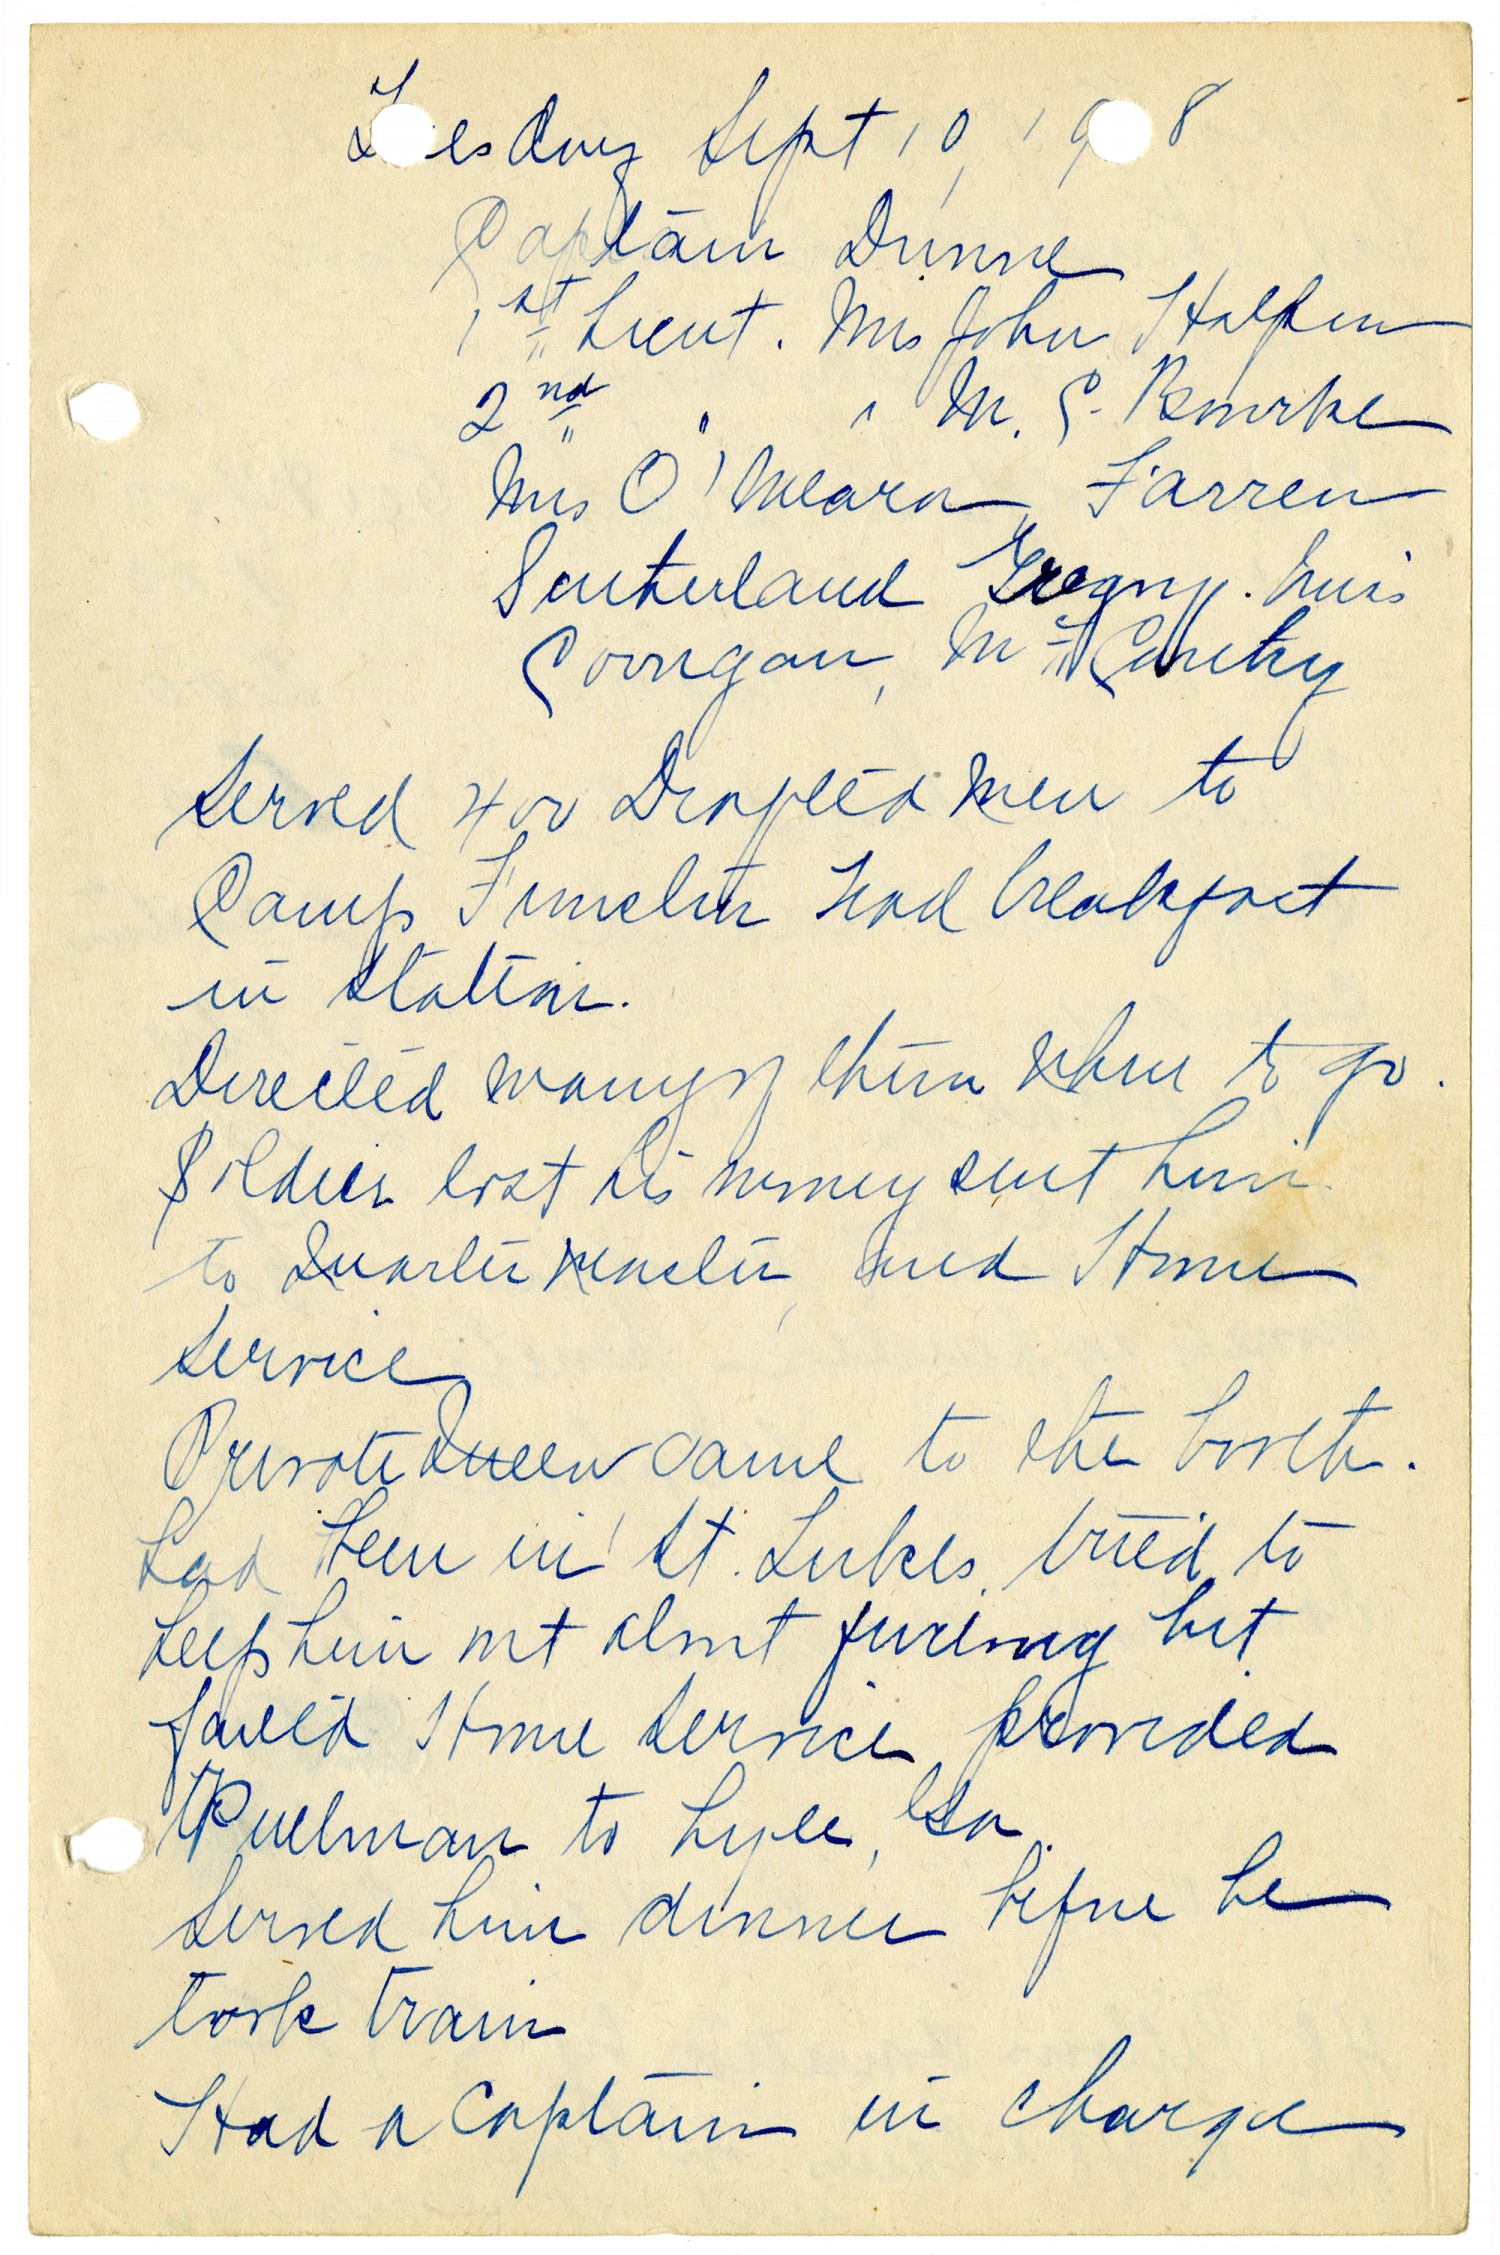 Tuesday Sept 10, 1918
Captain Dunne
1st Lieut. Mrs John Halpin
2nd " " M. C. Bourke
Mrs O'Meara, Farren
Sutherland Gregory.
Corrigan, McCarthy
Served 400 Drafted Men to
Camp Funston had breakfast
in Station.
Directed many of them where to go.
Soldier lost his money sent him
to Quartermaster, and Home
Service
Private Queen came to the booth.
had been in St. Lukes, tried to
help him out about furlong but
failed Home Service provided
Pullman to Lyle,
Served him dinner before he
took train
Had a Captain in charge